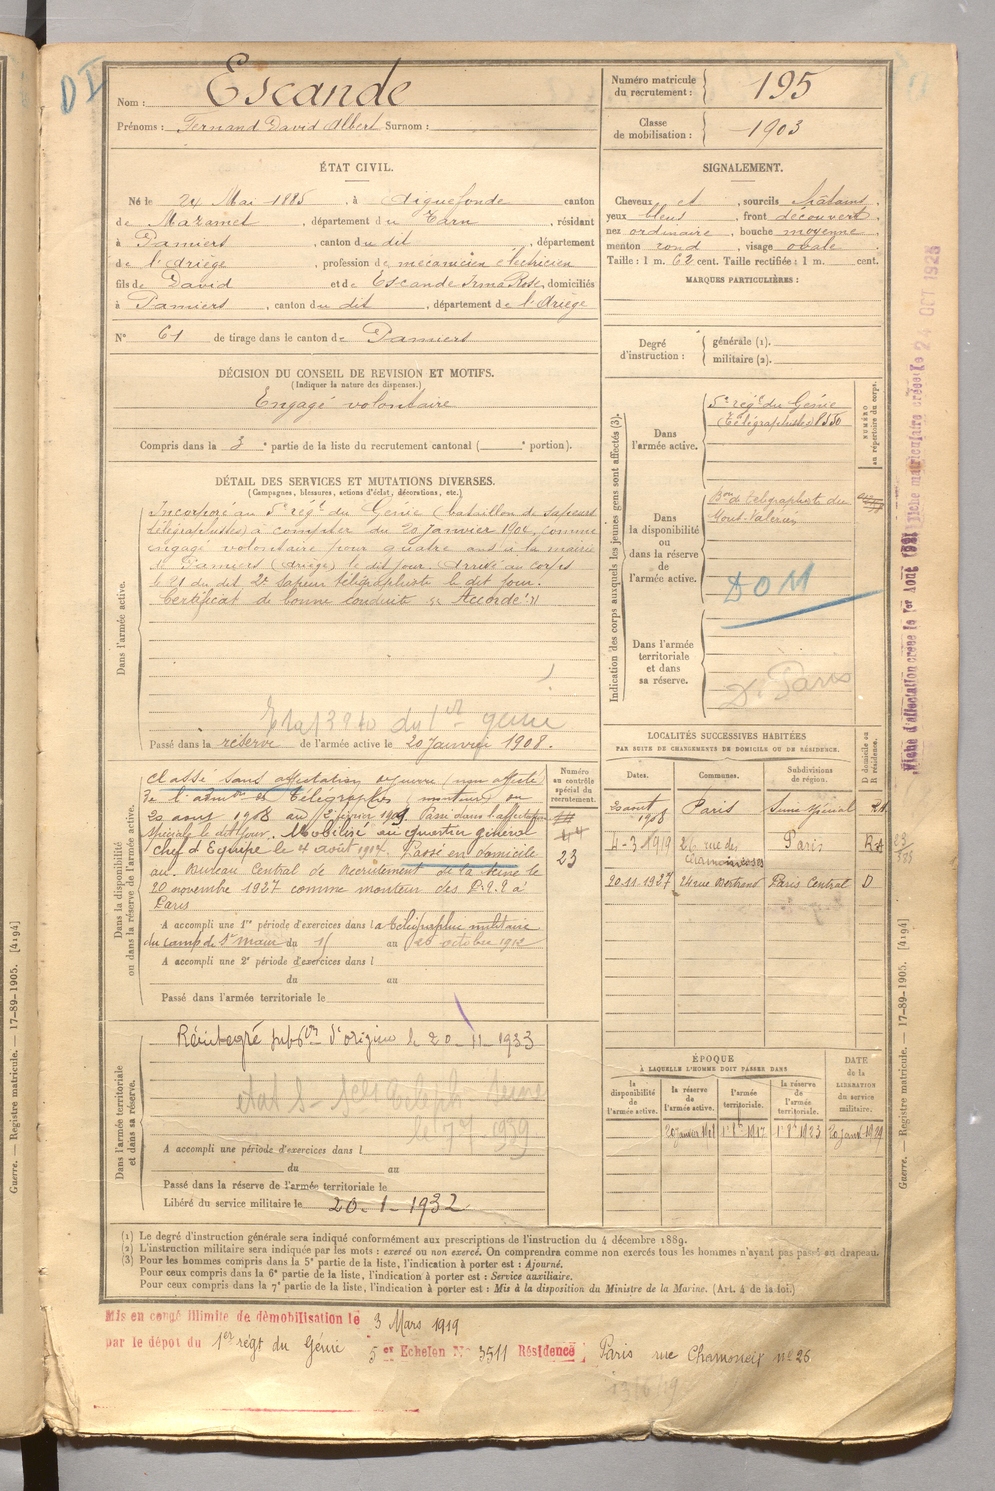 D I
Nom : Escande
Prénoms : Fernand David Albert Surnom :
Numéro matricule du recrutement : 195
Classe de mobilisation : 1903
ÉTAT CIVIL.
Né le 24 Mai 1885, à Aiguefonde canton
de Mazamet, département du Tarn, résidant
à Pamiers, canton du dit, département
de l'Ariège, profession de mécanicien électricien
fils de David et de Escande Irma Rose, domiciliés
à Pamiers, canton du dit, département de l'Ariège
N° 61 de tirage dans le canton de Pamiers
SIGNALEMENT.
Cheveux et, sourcils châtains,
yeux bleus, front découvert,
nez ordinaire, bouche moyenne,
menton rond, visage ovale.
Taille : 1 m. 62 cent. Taille rectifiée : 1 m. cent.
MARQUES PARTICULIÈRES :
Degré d'instruction : générale (1).
militaire (2).
DÉCISION DU CONSEIL DE REVISION ET MOTIFS.
(Indiquer la nature des dispenses.)
Engagé volontaire
Compris dans la 3e partie de la liste du recrutement cantonal ( e portion).
DÉTAIL DES SERVICES ET MUTATIONS DIVERSES.
(Campagnes, blessures, actions d'éclat, décorations, etc.)
Dans l'armée active.
Incorporé au 5e régt du Génie (bataillon de sapeurs
télégraphistes) à compter du 20 Janvier 1904, comme
engagé volontaire pour quatre ans à la mairie
de Pamiers (Ariège) le dit jour. Arrivé au corps
le 21 du dit 2e Sapeur télégraphiste le dit jour.
Certificat de bonne conduite "Accordé"
du 1er génie
Passé dans la réserve de l'armée active le 20 Janvier 1908.
Dans la disponibilité ou dans la réserve de l'armée active.
Classé sans affectation (non affecté)
de l'admon des Télégraphes (monteur) du
20 août 1908 au 12 février 1909. Passé dans l'affectation
spéciale le dit jour. Mobilisé au quartier général
chef d'Equipe le 4 août 1914. Passé en domicile
au Bureau Central de Recrutement de la Seine le
20 novembre 1927 comme monteur des P.T.T. à
Paris
A accompli une 1re période d'exercices dans la télégraphie militaire
du camp de St Maur du 11 au 26 octobre 1912
A accompli une 2e période d'exercices dans l
du au
Passé dans l'armée territoriale le
Numéro au contrôle spécial du recrutement.
23
Dans l'armée territoriale et dans sa réserve.
Réintégré subon d'origine le 20-11-1933
A accompli une période d'exercices dans l
du au
Passé dans la réserve de l'armée territoriale le
Libéré du service militaire le 20-1-1932
Indication des corps auxquels les jeunes gens sont affectés (3).
NUMÉRO au répertoire du corps.
Dans l'armée active.
5e régt du Génie
(Télégraphistes)
Dans la disponibilité ou dans la réserve de l'armée active.
Bon de télégraphiste du
Mont-Valérien
DOM
Dans l'armée territoriale et dans sa réserve.
Dt Paris
LOCALITÉS SUCCESSIVES HABITÉES
PAR SUITE DE CHANGEMENTS DE DOMICILE OU DE RÉSIDENCE.
Dates. Communes. Subdivisions de région. D domicile ou R résidence.
20 août 1908 Paris Seine
4-3-1919 26 rue des Chamoinesses Paris R
20.11.1937 24 rue Bertrand Paris Central D
ÉPOQUE
À LAQUELLE L'HOMME DOIT PASSER DANS
la disponibilité de l'armée active. la réserve de l'armée active. l'armée territoriale. la réserve de l'armée territoriale.
DATE de la LIBÉRATION du service militaire.
20 janvier 1908 1917 1923 20 janv 1929
(1) Le degré d'instruction générale sera indiqué conformément aux prescriptions de l'instruction du 4 décembre 1889.
(2) L'instruction militaire sera indiquée par les mots : exercé ou non exercé. On comprendra comme non exercés tous les hommes n'ayant pas passé au drapeau.
(3) Pour les hommes compris dans la 5e partie de la liste, l'indication à porter est : Ajourné.
Pour ceux compris dans la 6e partie de la liste, l'indication à porter est : Service auxiliaire.
Pour ceux compris dans la 7e partie de la liste, l'indication à porter est : Mis à la disposition du Ministre de la Marine. (Art. 4 de la loi.)
Mis en congé illimité de démobilisation le 3 Mars 1919
par le dépôt du 1er régt du Génie 5er Echelon N° 3511 Résidence : Paris rue Chamoneix n° 26
Fiche d'affectation créée le 1er Août 1921 Fiche matriculaire créée le 24 OCT 1928
Guerre. — Registre matricule. — 17-89-1905. [4194]
Guerre. — Registre matricule. — 17-89-1905. [4194]